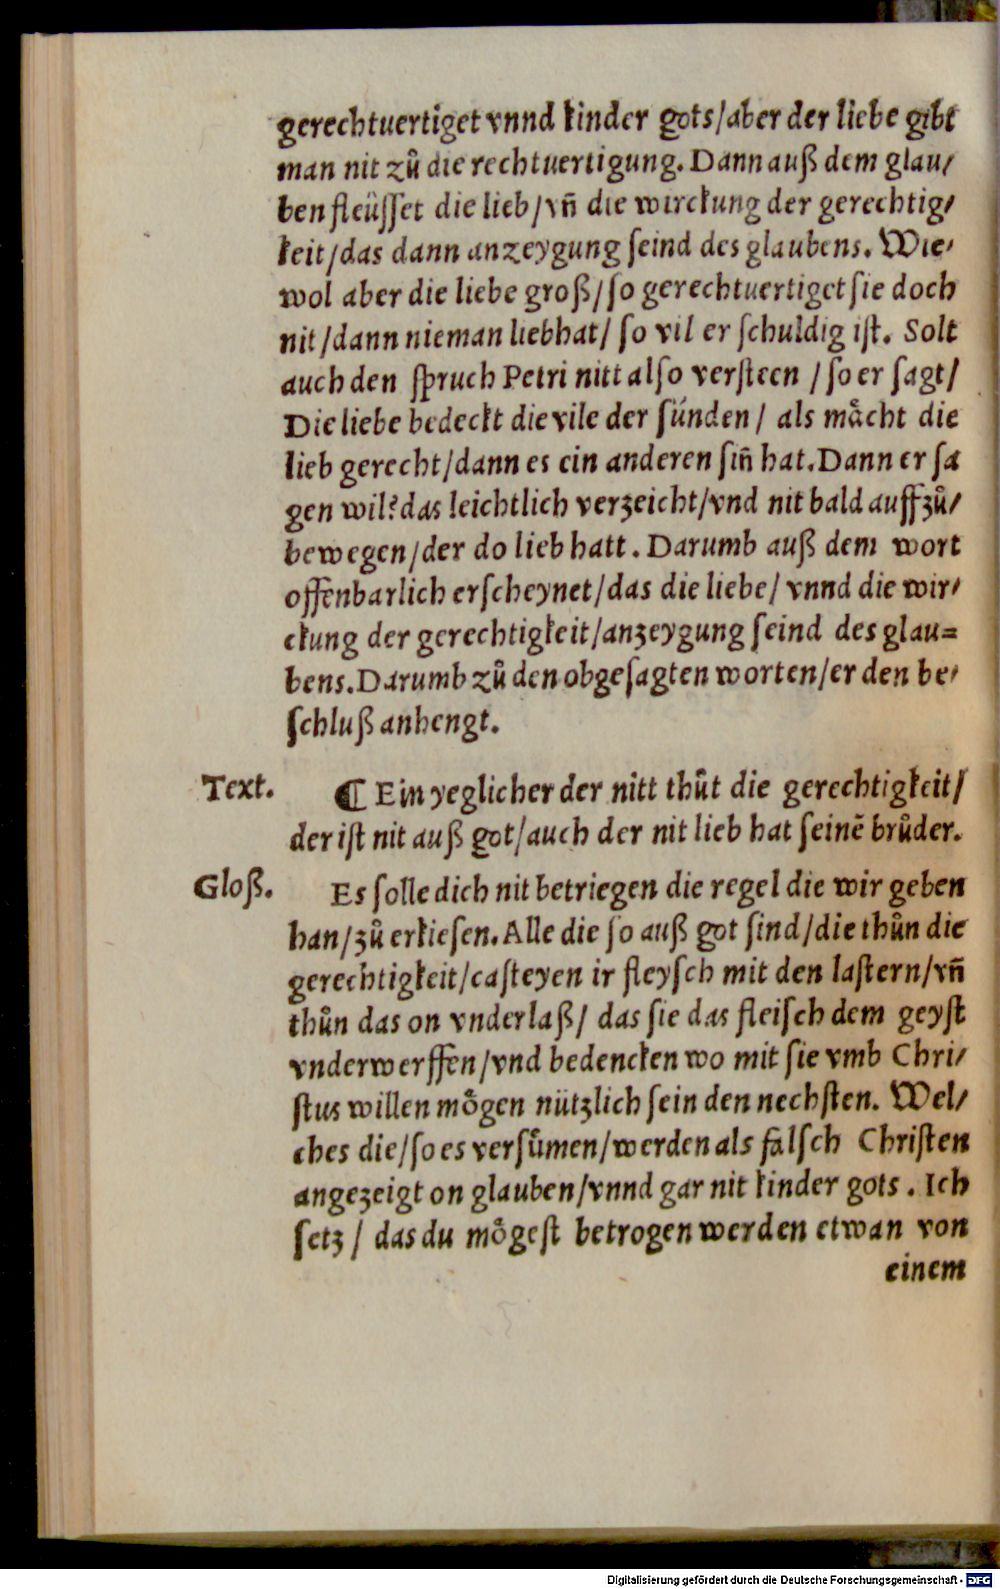 gerechtuertiget vnnd kinder gots/aber der liebe gibt
man nit zů die rechtuertigung. Dann auß dem glau/
ben fleüſſet die lieb/vn̄ die wirckung der gerechtig/
keit/das dann anzeygung ſeind des glaubens. Wie/
wol aber die liebe groß/ſo gerechtuertiget ſie doch
nit/dann nieman lieb hat/ ſo vil er ſchuldig iſt. Solt
auch den ſpruch Petri nitt alſo verſteen /ſo er ſagt/
Die liebe bedeckt die vile der ſünden/ als maͤcht die
lieb gerecht/dann es ein anderen ſin̄ hat. Dann er ſa
gen wil? das leichtlich verzeicht/vnd nit bald auffzů/
bewegen/der do lieb hatt. Darumb auß dem wort
offenbarlich erſcheynet/das die liebe/ vnnd die wir/
ckung der gerechtigkeit/anzeygung ſeind des glau=
bens. Darumb zů den obgeſagten worten/er den be/
ſchluß anhengt.
Text. ¶ Ein yeglicher der nitt thůt die gerechtigkeit/
der iſt nit auß got/auch der nit lieb hat ſeinē brůder.
Gloß. Es ſolle dich nit betriegen die regel die wir geben
han/zů erkieſen. Alle die ſo auß got ſind/die thůn die
gerechtigkeit/caſteyen ir fleyſch mit den laſtern/vn̄
thůn das on vnderlaß/ das ſie das fleiſch dem geyſt
vnderwerffen/vnd bedencken wo mit ſie vmb Chri/
ſtus willen moͤgen nützlich ſein den nechſten. Wel/
ches die/ſo es verſůmen/werden als falſch Chriſten
angezeigt on glauben/vnnd gar nit kinder gots. Ich
ſetz/ das du moͤgeſt betrogen werden etwan von
einem
Digitalisierung gefördert durch die Deutsche Forschungsgemeinschaft - DFG